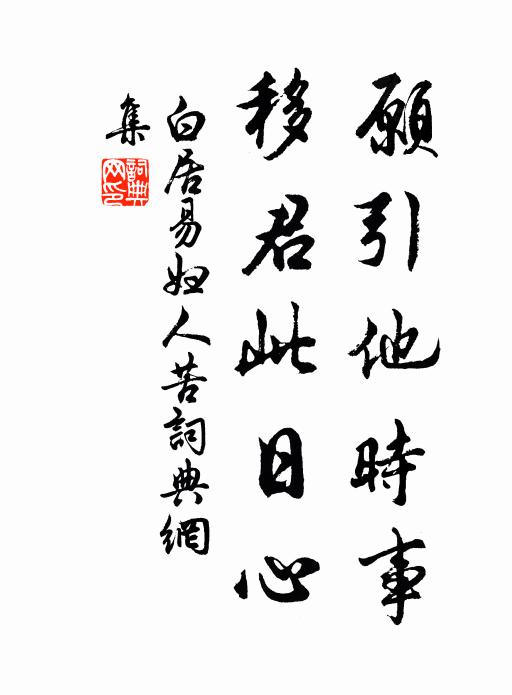 願引他時事
移君此日心
白居易婦人苦詞典網
集
詞典
網印